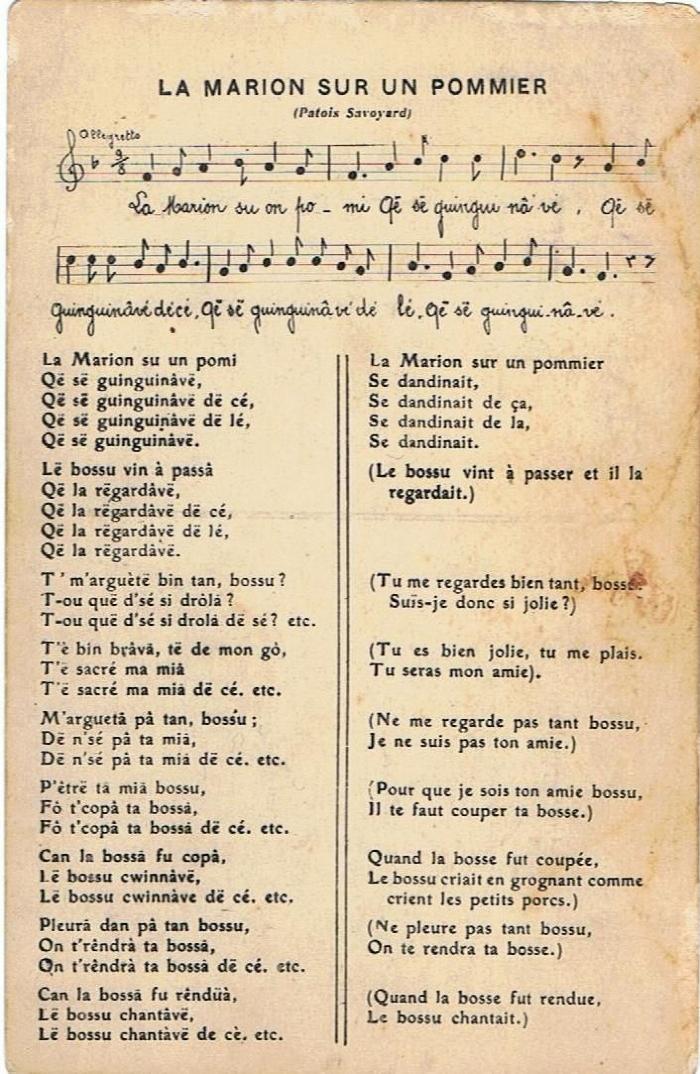 LA MARION SUR UN POMMIER
(Patois Savoyard)
Allegretto
La Marion su on po - mi Që së guingui nâ vé, Që së
guinguinâvé décé, Që së guinguinâ vé dé lé, Që së guingui-nâ-vé.
La Marion su un pomi
Që së guinguinâvë,
Që së guinguinâvë dë cé,
Që së guinguinâvë dë lé,
Që së guinguinâvë.
Lë bossu vin à passâ
Që la rëgardâvë,
Që la rëgardâvë dë cé,
Që la rëgardâvë dë lé,
Që la rëgardâvë.
T'm'arguètë bin tan, bossu ?
T-ou quë d'sé si drôlâ ?
T-ou quë d'sé si drolà dë sé ? etc.
T'ë bin brâvâ, të de mon gô,
T'ë sacré ma miâ
T'ë sacré ma miâ dë cé. etc.
M'arguetâ pâ tan, bossu ;
Dë n'sé pâ ta miâ,
Dë n'sé pâ ta miâ dë cé. etc.
P'êtrë tâ miâ bossu,
Fô t'copâ ta bossâ,
Fô t'copâ ta bossâ dë cé. etc.
Can la bossâ fu copâ,
Lë bossu cwinnâvë,
Lë bossu cwinnâve dë cé. etc.
Pleurâ dan pâ tan bossu,
On t'rêndrà ta bossâ,
On t'rêndrà ta bossâ dë cé. etc.
Can la bossâ fu rêndüà,
Lë bossu chantâvë,
Lë bossu chantàvë de cè. etc.
La Marion sur un pommier
Se dandinait,
Se dandinait de ça,
Se dandinait de la,
Se dandinait.
(Le bossu vint à passer et il la
regardait.)
(Tu me regardes bien tant, bossu.
Suis-je donc si jolie ?)
(Tu es bien jolie, tu me plais.
Tu seras mon amie).
(Ne me regarde pas tant bossu,
Je ne suis pas ton amie.)
(Pour que je sois ton amie bossu,
Il te faut couper ta bosse.)
Quand la bosse fut coupée,
Le bossu criait en grognant comme
crient les petits porcs.)
(Ne pleure pas tant bossu,
On te rendra ta bosse.)
(Quand la bosse fut rendue,
Le bossu chantait.)